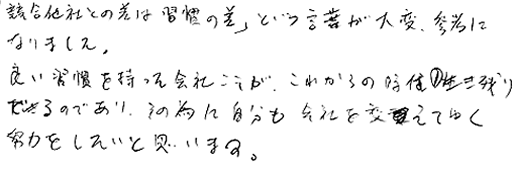 競合他社との差は「習慣の差」という言葉が大変、参考に
なりました。
良い習慣を持った会社こそが、これからの時代生き残り
できるのであり、その為に自分も会社を変えてゆく
努力をしたいと思います。